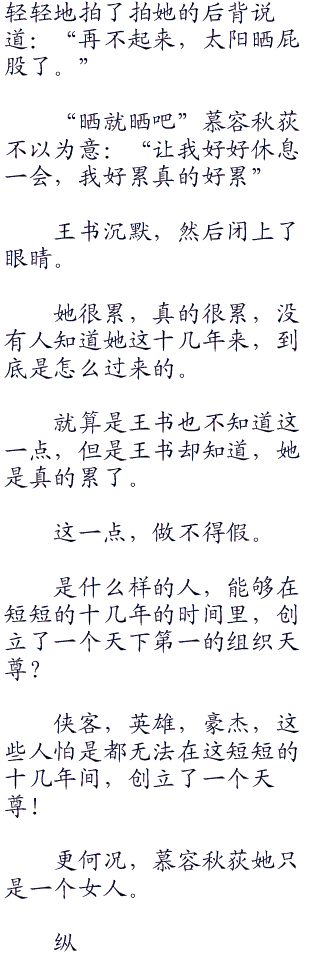 轻轻地拍了拍她的后背说
道：“再不起来，太阳晒屁
股了。”
“晒就晒吧”慕容秋荻
不以为意：“让我好好休息
一会，我好累真的好累”
王书沉默，然后闭上了
眼睛。
她很累，真的很累，没
有人知道她这十几年来，到
底是怎么过来的。
就算是王书也不知道这
一点，但是王书却知道，她
是真的累了。
这一点，做不得假。
是什么样的人，能够在
短短的十几年的时间里，创
立了一个天下第一的组织天
尊？
侠客，英雄，豪杰，这
些人怕是都无法在这短短的
十几年间，创立了一个天
尊！
更何况，慕容秋荻她只
是一个女人。
纵